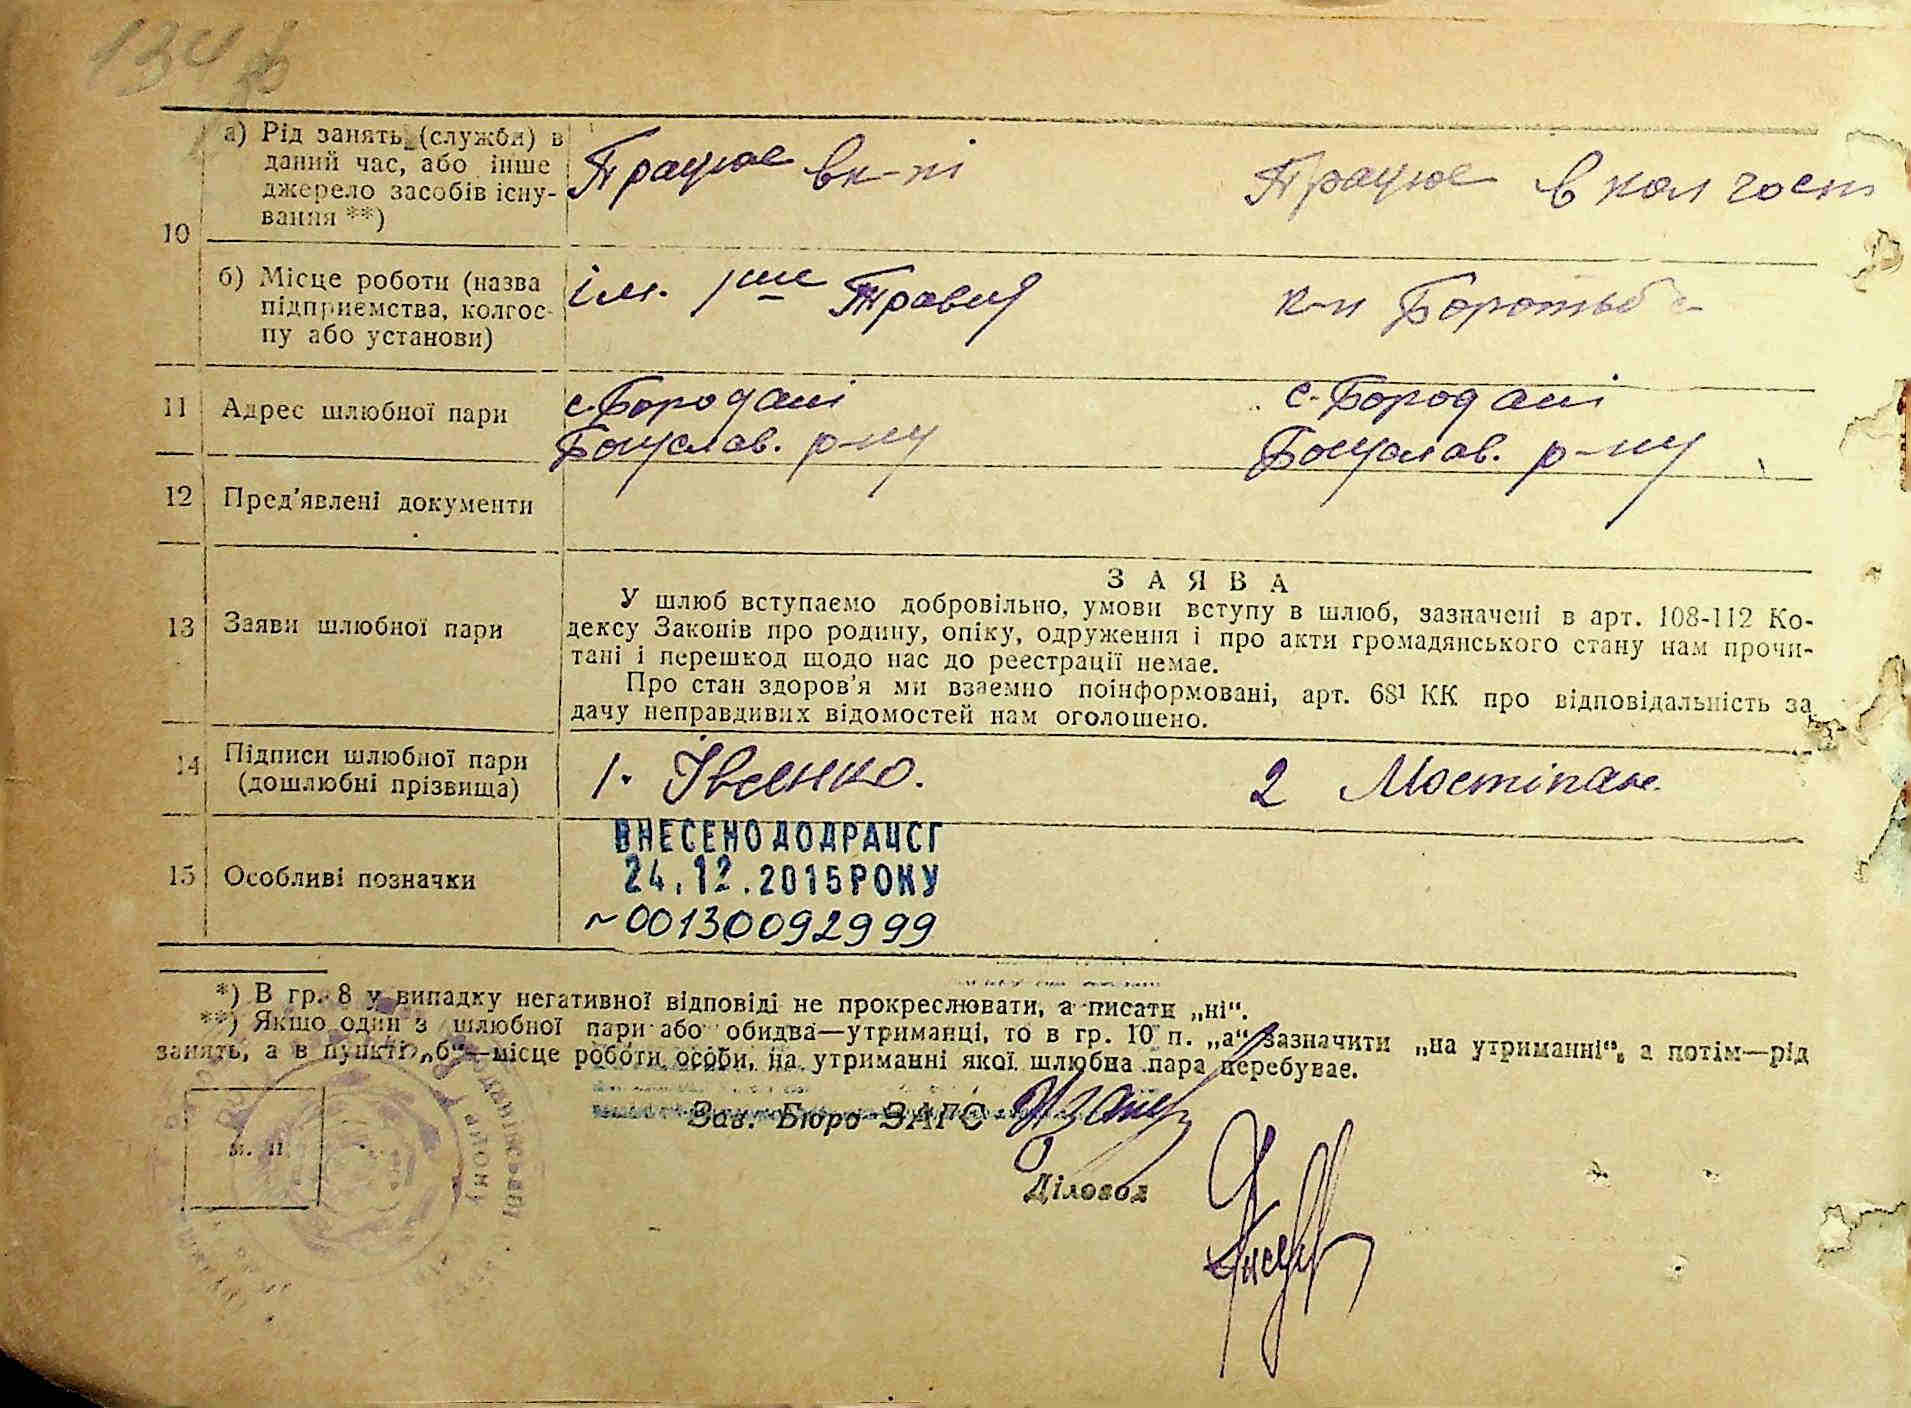 134
10
а) Рід занять (служби) в
даний час, або інше
джерело засобів існу-
вання **)
Працює в к-пі
Працює в колгосп
б) Місце роботи (назва
підприємства, колгос-
пу або установи)
ім. 1ше Травня
к-п Боротьба
11
Адрес шлюбної пари
с. Бородані
Богуслав. р-ну
с. Бородані
Богуслав. р-ну
12
Пред'явлені документи
13
Заяви шлюбної пари
ЗАЯВА
У шлюб вступаємо добровільно, умови вступу в шлюб, зазначені в арт. 108-112 Ко-
дексу Законів про родину, опіку, одруження і про акти громадянського стану нам прочи-
тані і перешкод щодо нас до реєстрації немає.
Про стан здоров'я ми взаємно поінформовані, арт. 68¹ КК про відповідальність за
дачу неправдивих відомостей нам оголошено.
14
Підписи шлюбної пари
(дошлюбні прізвища)
1. Івсенко.
2 Мостіпан.
15
Особливі позначки
ВНЕСЕНО ДО ДРАЦСГ
24.12.2015 РОКУ
~00130092999
*) В гр. 8 у випадку негативної відповіді не прокреслювати, а писати „ні“.
**) Якшо один з шлюбної пари або обидва—утриманці, то в гр. 10 п. „а“ зазначити „на утриманні“, а потім—рід
занять, а в пункті „б“—місце роботи особи, на утриманні якої шлюбна пара перебуває.
м. п.
Зав. Бюро ЗАГС
Діловод